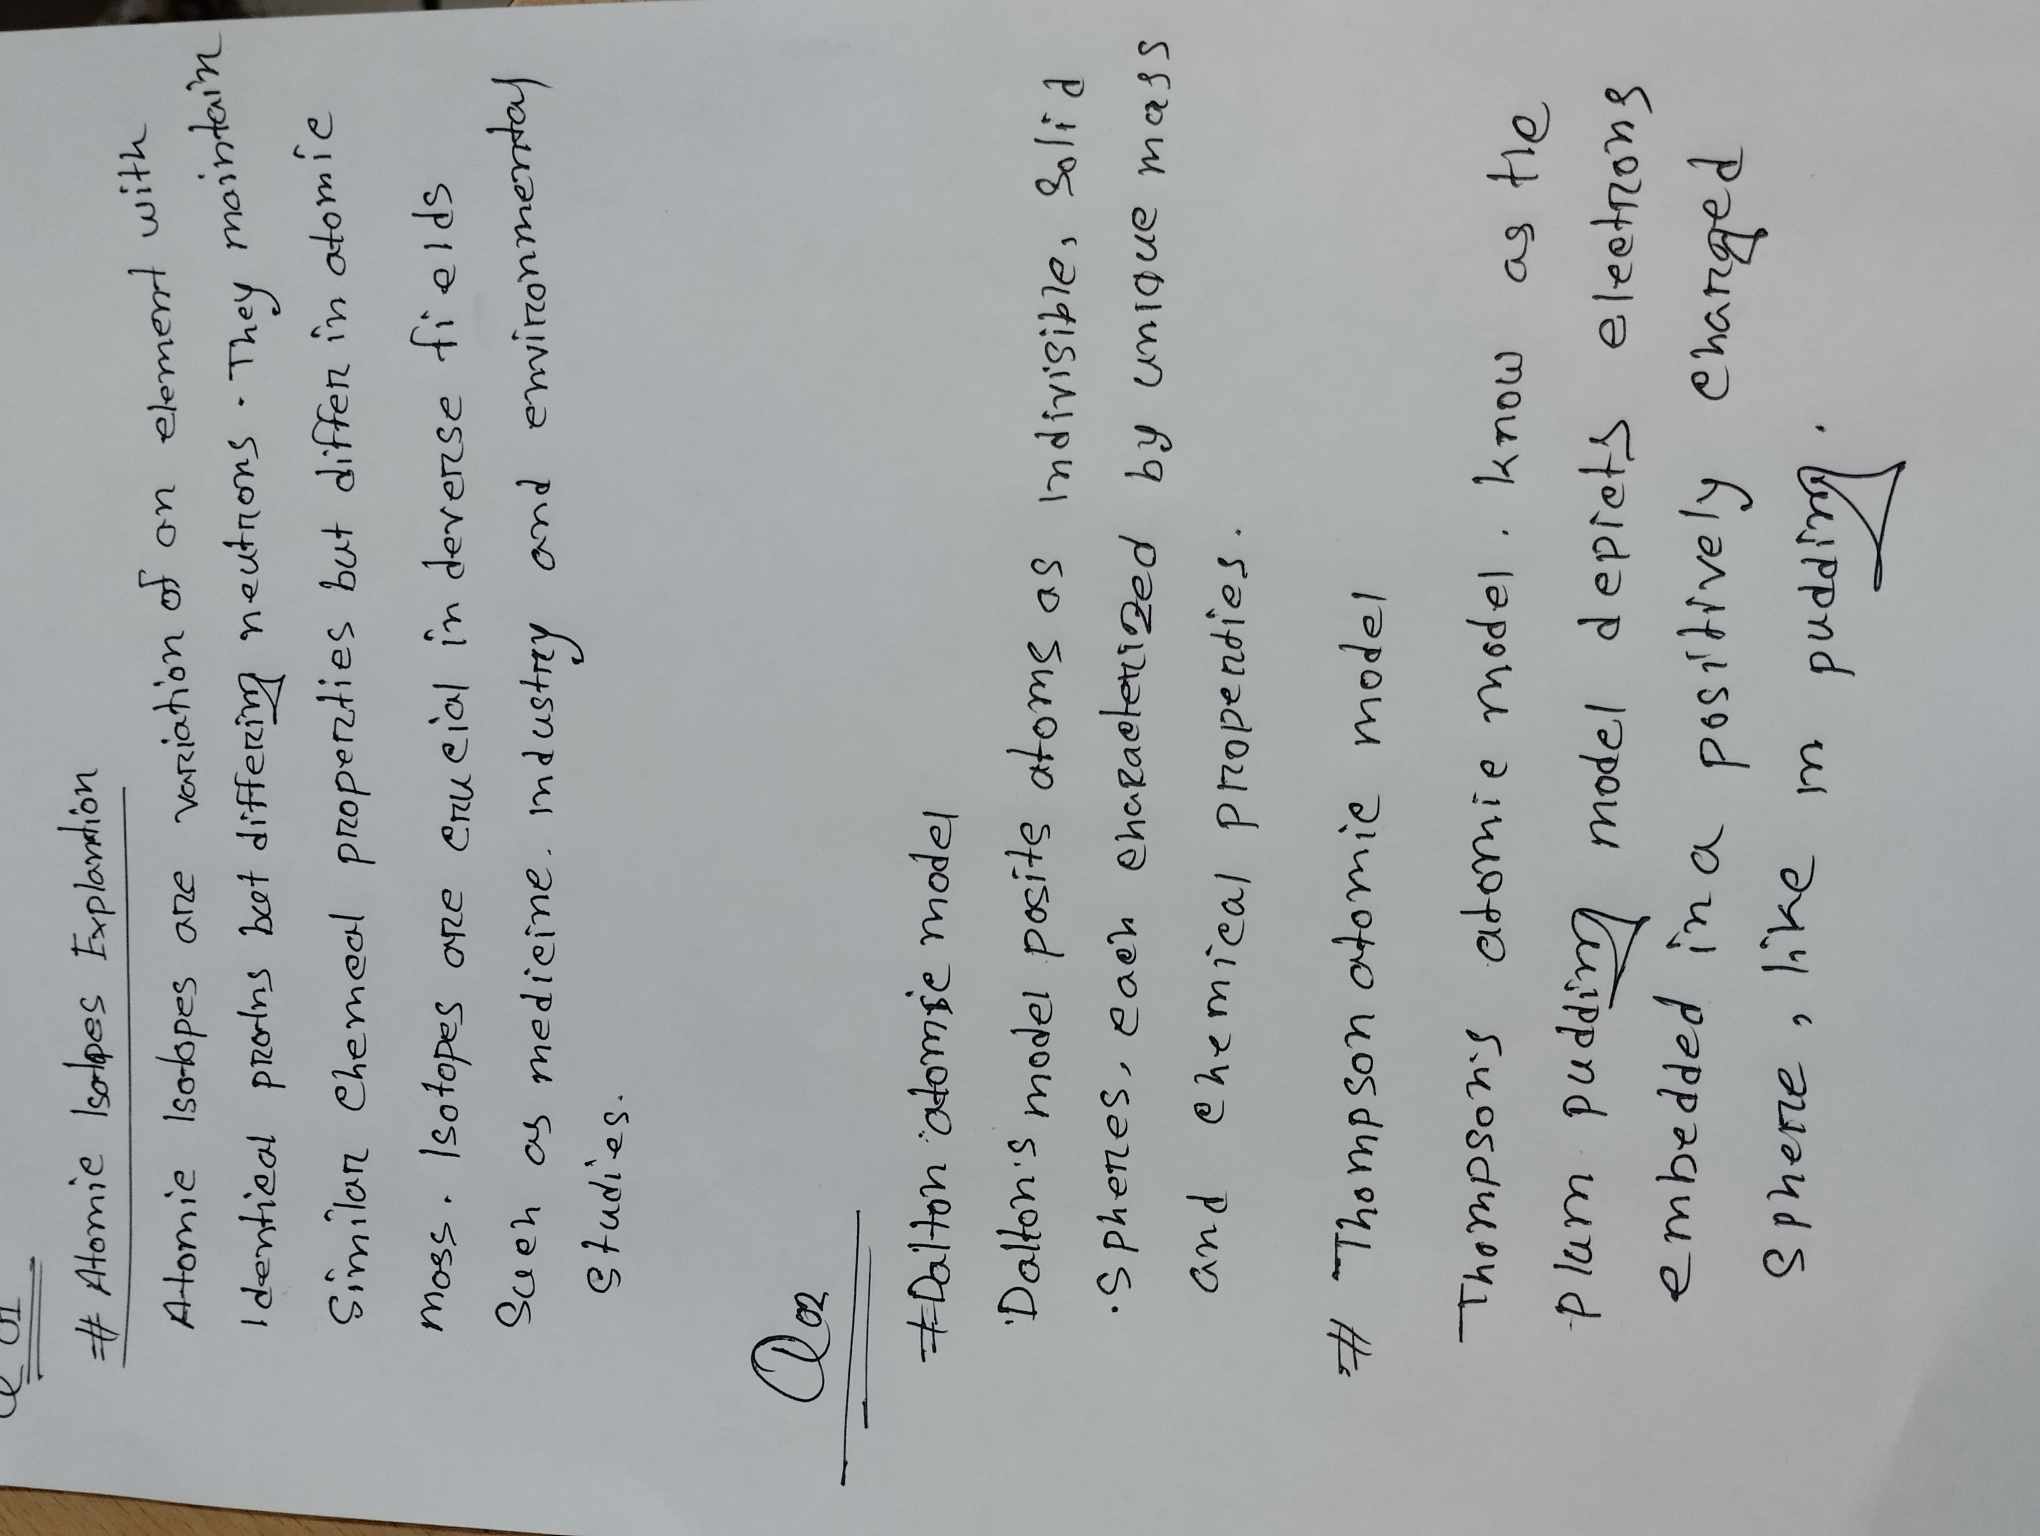 Q 01
# Atomic Isotpes Explantion
Atomic Isotopes are variation of an element with
Identical protns but differing neutrons. They maintain
Similar Chemcal properties but differ in atomic
mass. Isotopes are crucial in deverse fields
Such as medicine. industry and environmental
studies.
Q 02
# Dalton atomic model
Dalton's model posits atoms as indivisible, Solid
spheres, each characterized by unique mass
and chemical properties.
# Thompson atomic model
Thompson's atomic model. know as the
plum pudding model depicts electrons
embedded in a positively charged
sphere, like in pudding.